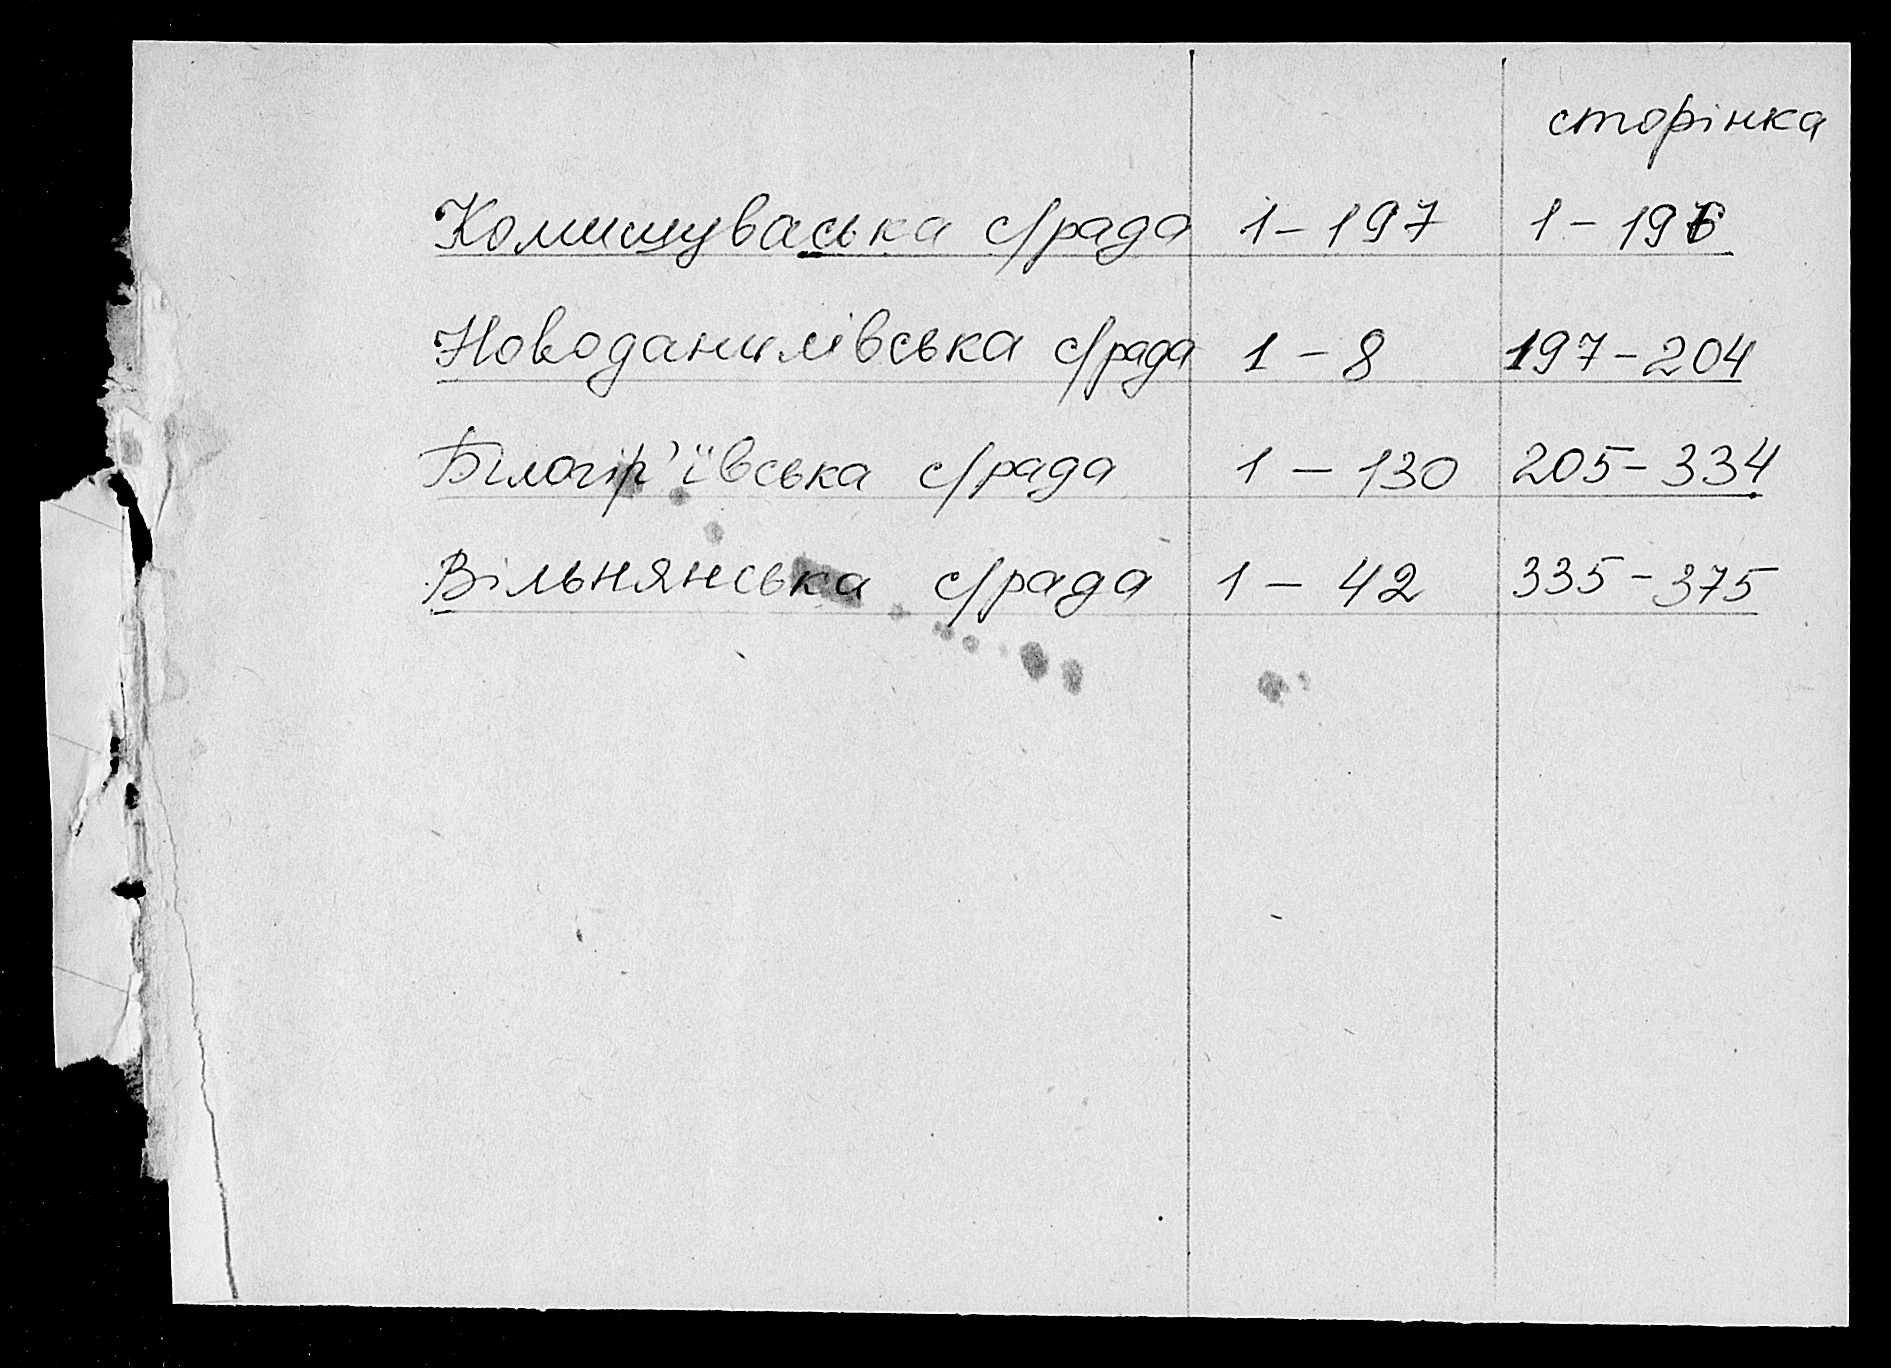 сторінка
Комишуваська с/рада 1-197 1-196
Новоданилівська с/рада 1-8 197-204
Білогір'ївська с/рада 1-130 205-334
Вільнянська с/рада 1-42 335-375